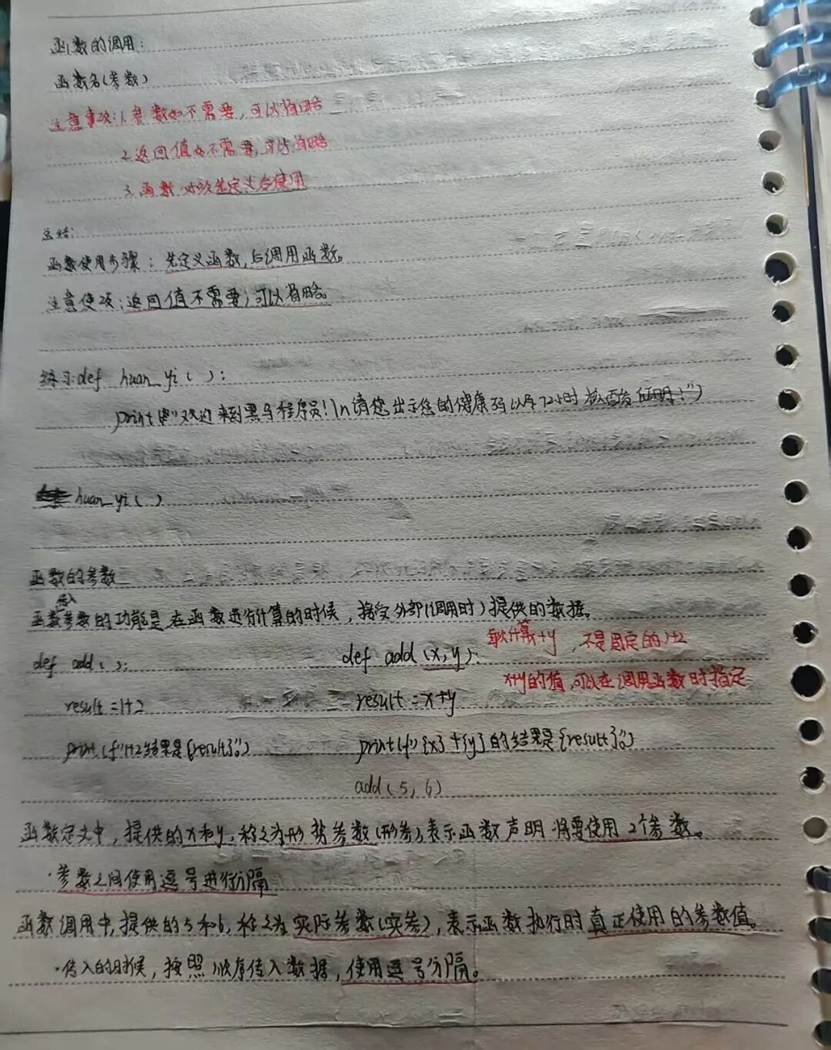 函数的调用：
函数名(参数)
注意事项：1.参数如不需要，可以省略
2.返回值如不需要，可以省略
3.函数必须先定义后使用
总结：
函数使用步骤：先定义函数，后调用函数。
注意使项：返回值不需要，可以省略。
练习：def huan_yi():
print("欢迎来到黑马程序员！\n请您出示您的健康码以及72小时核酸证明！")
huan_yi()
函数的参数
函数传入参数的功能是在函数进行计算的时候，接受外部(调用时)提供的数据。
def add():
result=1+2
print(f"1+2结果是{result}")
def add(x,y):
result=x+y
print(f"{x}+{y}的结果是{result}")
add(5,6)
+y，不是固定的1+2
x+y的值，可以在调用函数时指定
函数定义中，提供的x和y，称之为形势参数(形参)，表示函数声明将要使用2个参数。
·参数之间使用逗号进行分隔
函数调用中，提供的5和6，称之为实际参数(实参)，表示函数执行时真正使用的参数值。
·传入的时候，按照顺序传入数据，使用逗号分隔。